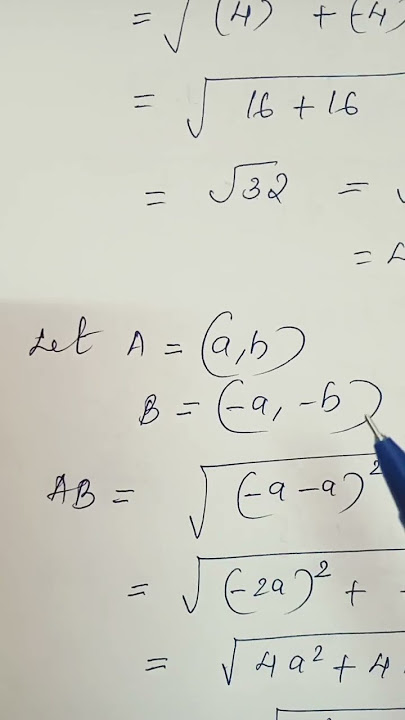 = √(4) + (-4)
= √16 + 16
= √32 =
=
Let A = (a, b)
B = (-a, -b)
AB = √(-a -a)²
= √(-2a)² +
= √4a² + 4